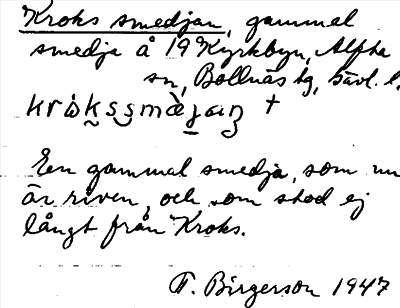 Kroks smedjan, gammal
smedja å 19 Kyrkbyn, Alfta
sn, Bollnäs tg, Gävl. l.
krὼkssmὲjaṇ †
En gammal smedja, som nu
är riven, och som stod ej
långt från Kroks.
F. Birgerson 1947